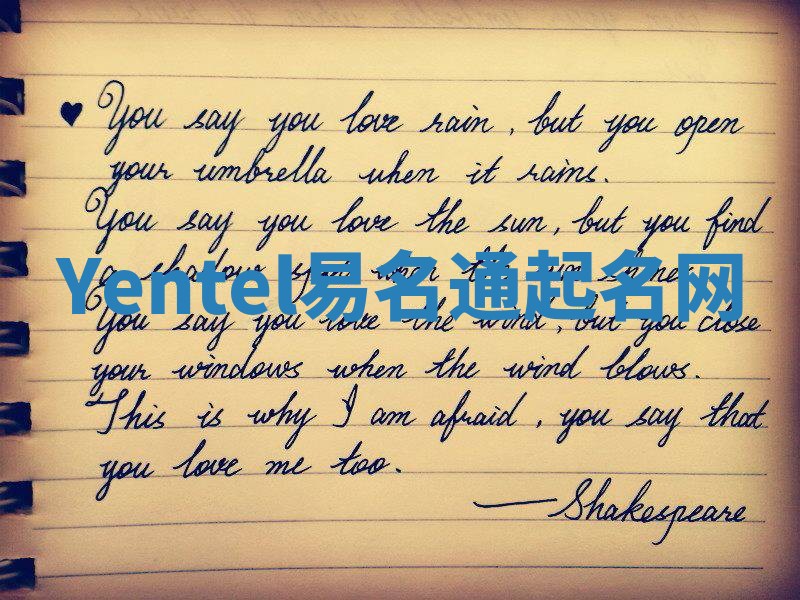 ♥ You say you love rain, but you open
your umbrella when it rains.
You say you love the sun, but you find
a shadow spot when the sun shines.
Yentel易名通起名网
You say you love the wind, but you close
your windows when the wind blows.
This is why I am afraid, you say that
you love me too.
— Shakespeare